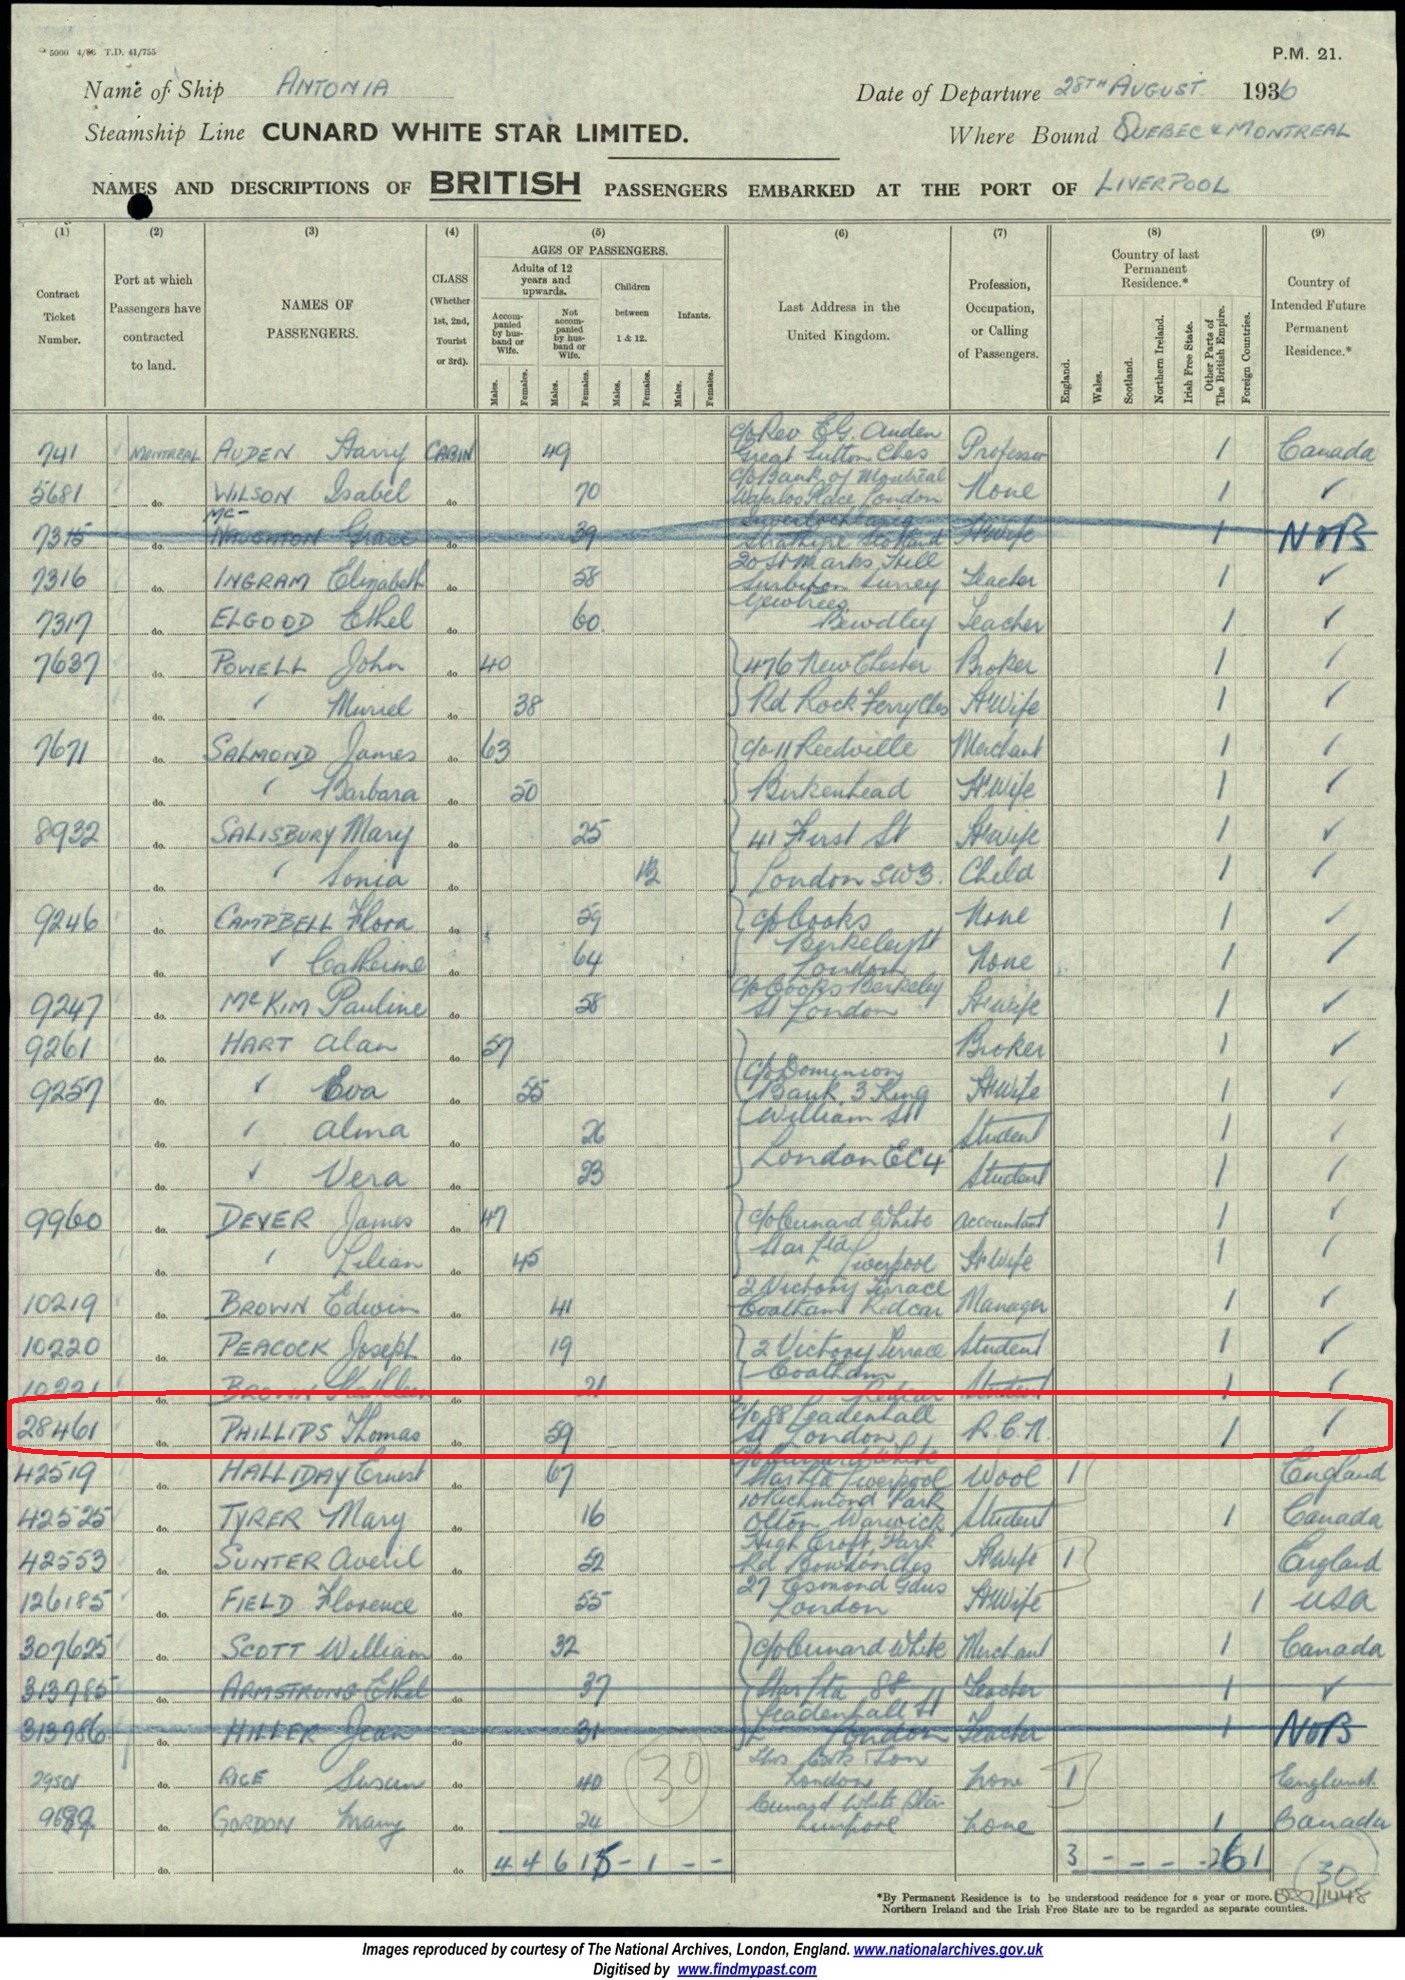 5000 4/36 T.D. 41/755
P.M. 21.
Name of Ship ANTONIA Date of Departure 28TH AUGUST 1936
Steamship Line CUNARD WHITE STAR LIMITED. Where Bound QUEBEC & MONTREAL
NAMES AND DESCRIPTIONS OF BRITISH PASSENGERS EMBARKED AT THE PORT OF LIVERPOOL
(1) (2) (3) (4) (5) (6) (7) (8) (9)
Contract Ticket Number.
Port at which Passengers have contracted to land.
NAMES OF PASSENGERS.
CLASS (Whether 1st, 2nd, Tourist or 3rd).
AGES OF PASSENGERS.
Adults of 12 years and upwards.
Accompanied by husband or Wife.
Not accompanied by husband or Wife.
Children between 1 & 12.
Infants.
Males. Females. Males. Females. Males. Females. Males. Females.
Last Address in the United Kingdom.
Profession, Occupation, or Calling of Passengers.
Country of last Permanent Residence.*
England. Wales. Scotland. Northern Ireland. Irish Free State. Other Parts of The British Empire. Foreign Countries.
Country of Intended Future Permanent Residence.*
741 MONTREAL AUDEN Harry CABIN 49 c/o Rev E.G. Auden Great Sutton Ches Professor 1 Canada
5681 do. WILSON Isabel do 70 c/o Bank of Montreal Waterloo Place London None 1 ✓
7315 do. McNAUGHTON Grace do 39 H'Wife 1 NOB
7316 do. INGRAM Elizabeth do 58 20 St Marks Hill Surbiton Surrey Teacher 1 ✓
7317 do. ELGOOD Ethel do 60 Bewdley Teacher 1 ✓
7637 do. POWELL John do 40 476 New Chester Broker 1 ✓
do. " Muriel do 38 Rd Rock Ferry Ches H'Wife 1 ✓
7671 do. SALMOND James do 63 c/o 11 Reedville Merchant 1 ✓
do. " Barbara do 50 Birkenhead H'Wife 1 ✓
8932 do. SALISBURY Mary do 25 41 First St H'Wife 1 ✓
do. " Sonia do London SW3. Child 1 ✓
9246 do. CAMPBELL Flora do 59 c/o Cooks None 1 ✓
do. " Catherine do 64 Berkeley St London None 1 ✓
9247 do. McKIM Pauline do 58 c/o Cooks Berkeley St London H'Wife 1 ✓
9261 do. HART Alan do 57 c/o Dominion Broker 1 ✓
9257 do. " Eva do 55 Bank, 3 King H'Wife 1 ✓
do. " Alma do 26 William St Student 1 ✓
do. " Vera do 23 London EC4 Student 1 ✓
9960 do. DEYER James do 47 c/o Cunard White Accountant 1 ✓
do. " Lilian do 45 Star Ltd Liverpool H'Wife 1 ✓
10219 do. BROWN Edwin do 41 2 Victory Terrace Coatham Redcar Manager 1 ✓
10220 do. PEACOCK Joseph do 19 2 Victory Terrace Student 1 ✓
10221 do. BROWN Kathleen do 21 Coatham Redcar Student 1 ✓
28461 do. PHILLIPS Thomas do 59 c/o 88 Leadenhall St London R.C.N. 1 ✓
42519 do. HALLIDAY Ernest do 67 c/o Cunard White Star Ltd Liverpool Wool 1 England
42525 do. TYRER Mary do 16 10 Richmond Park Olton Warwick Student 1 Canada
42553 do. SUNTER Averil do 52 High Croft, Park Rd Bowdon Ches H'Wife 1 England
126185 do. FIELD Florence do 55 27 Esmond Gdns London H'Wife 1 USA
307625 do. SCOTT William do 32 c/o Cunard White Merchant 1 Canada
313785 do. ARMSTRONG Ethel do 37 Star Ltd 88 Teacher 1 ✓
313786 do. HILLER Jean do 31 Leadenhall St London Teacher 1 NOB
29501 do. RICE Susan do 40 Thos Cook & Son London None 1 England
do. GORDON Mary do 24 Cunard White Star Liverpool None 1 Canada
30
do. do 4 4 6 15 - 1 - - 3 - - - - 26 1
30
BT27/1448
*By Permanent Residence is to be understood residence for a year or more.
Northern Ireland and the Irish Free State are to be regarded as separate counties.
Images reproduced by courtesy of The National Archives, London, England. www.nationalarchives.gov.uk
Digitised by www.findmypast.com